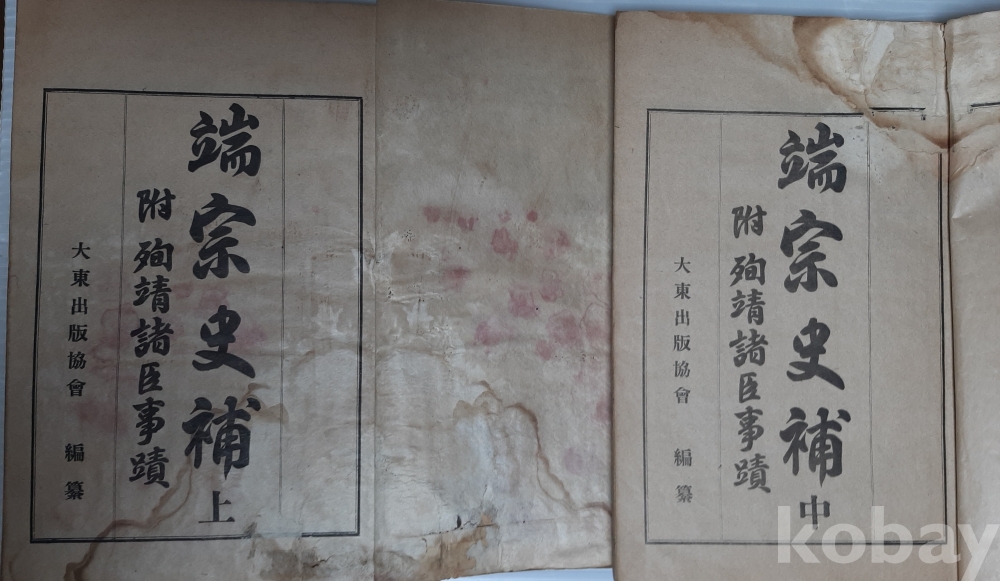 端宗史補 上
附 殉靖諸臣事蹟
大東出版協會 編纂
端宗史補 中
附 殉靖諸臣事蹟
大東出版協會 編纂
kobay